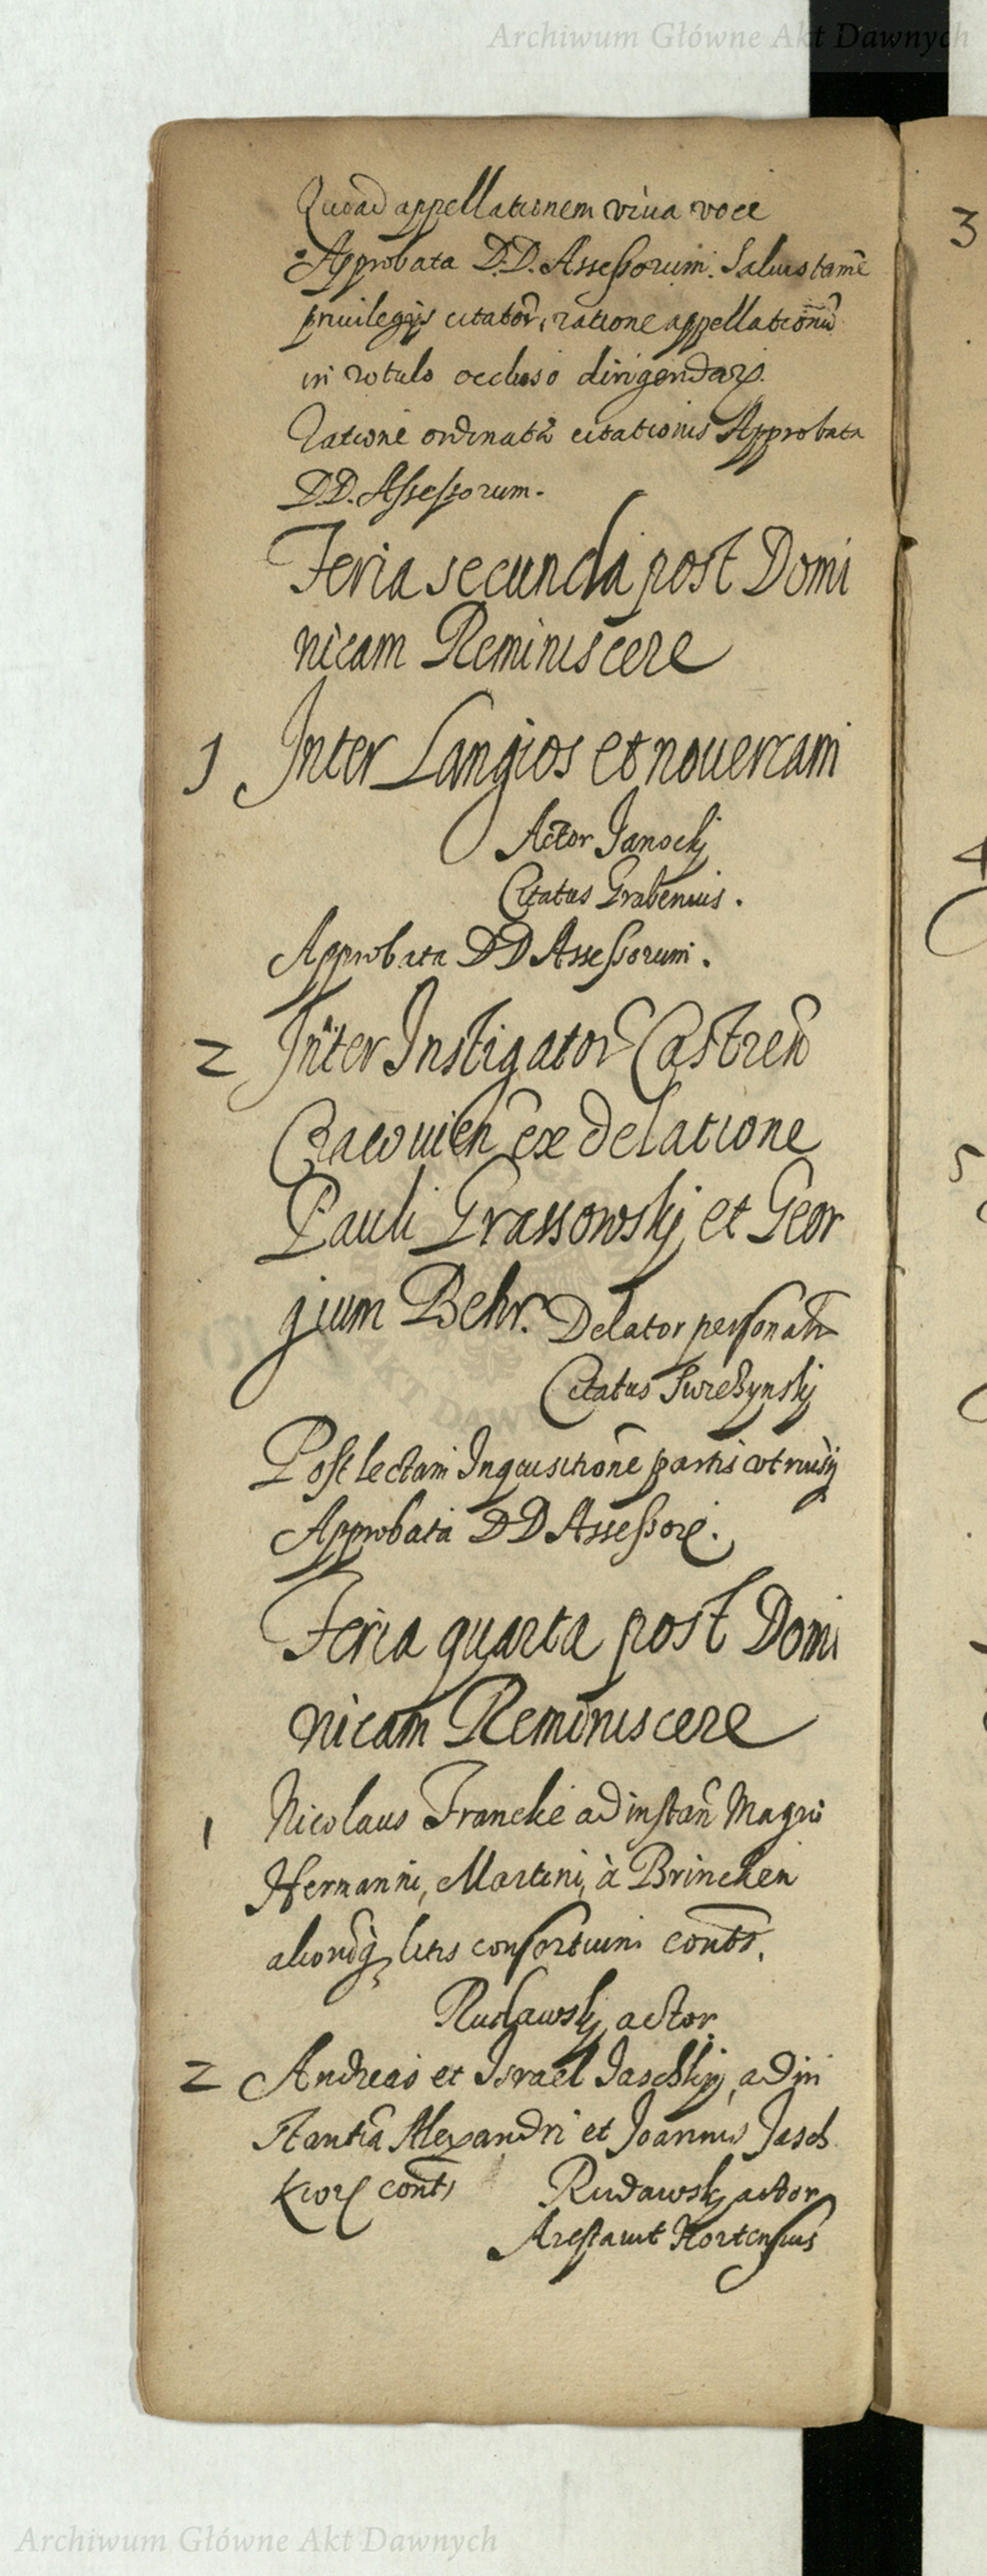 Archiwum Główne Akt Dawnych
Quoad appellationem viua voce
Approbata D.D. Assessorum. Saluis tamē
priuilegijs citator, ratione appellationū
in rotulo occluso dirigendarꝝ.
Ratione ordinatæ citationis Approbata
DD. Assessorum.
Feria secunda post Domi
nicam Reminiscere
1 Inter Langios et nouercam
Actor Janockj
Citatus Grabenius.
Approbata DD Assessorum.
2 Inter Instigator Castren
Cracouien ex delatione
Pauli Grassowskj et Geor
gium Behr. Delator personalr
Citatus
Post lectam Inquisitionē partis vtriusq
Approbata DD Assessorꝝ.
Feria quarta post Domi
nicam Reminiscere
1 Nicolaus Francke ad instan Magri
Hermanni, Martini, à Brincken
aliorūq litis consortium conts.
Rudawskj actor
2 Andreas et Israel Jaschkij, ad in
stantiā Alexandri et Joannis Jasch
kiorꝝ conts Rudawskj actor
Arestauit Hortensius
3
4
5
Archiwum Główne Akt Dawnych